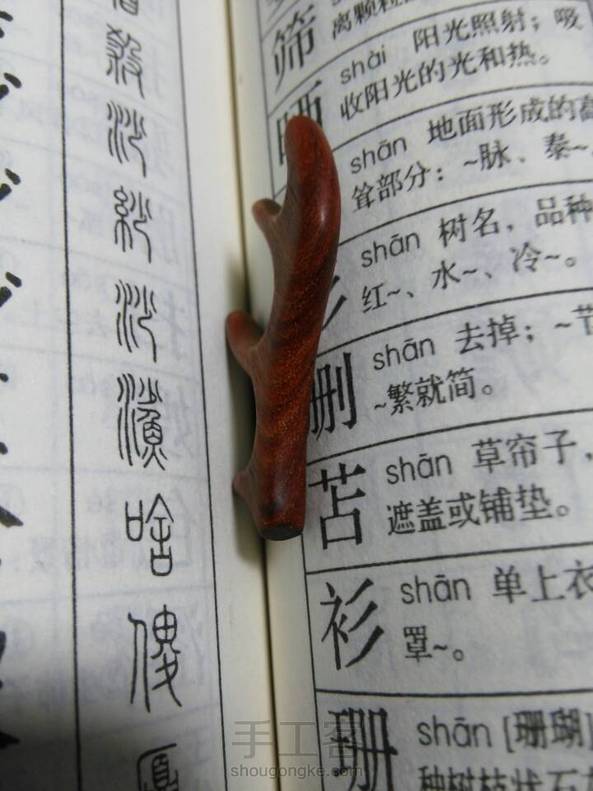 杀
沙
纱
沙
啥
傻
筛
离颗粒
晒
shài 阳光照射；吸
收阳光的光和热。
shān 地面形成的高
耸部分：~脉、秦~
shān 树名，品种
红~、水~、冷~。
删
shān 去掉；~节
~繁就简。
苫
shān 草帘子，
遮盖或铺垫。
衫
shān 单上衣
罩~。
珊
shān [珊瑚]
种树枝状石
手工客
shougongke.com